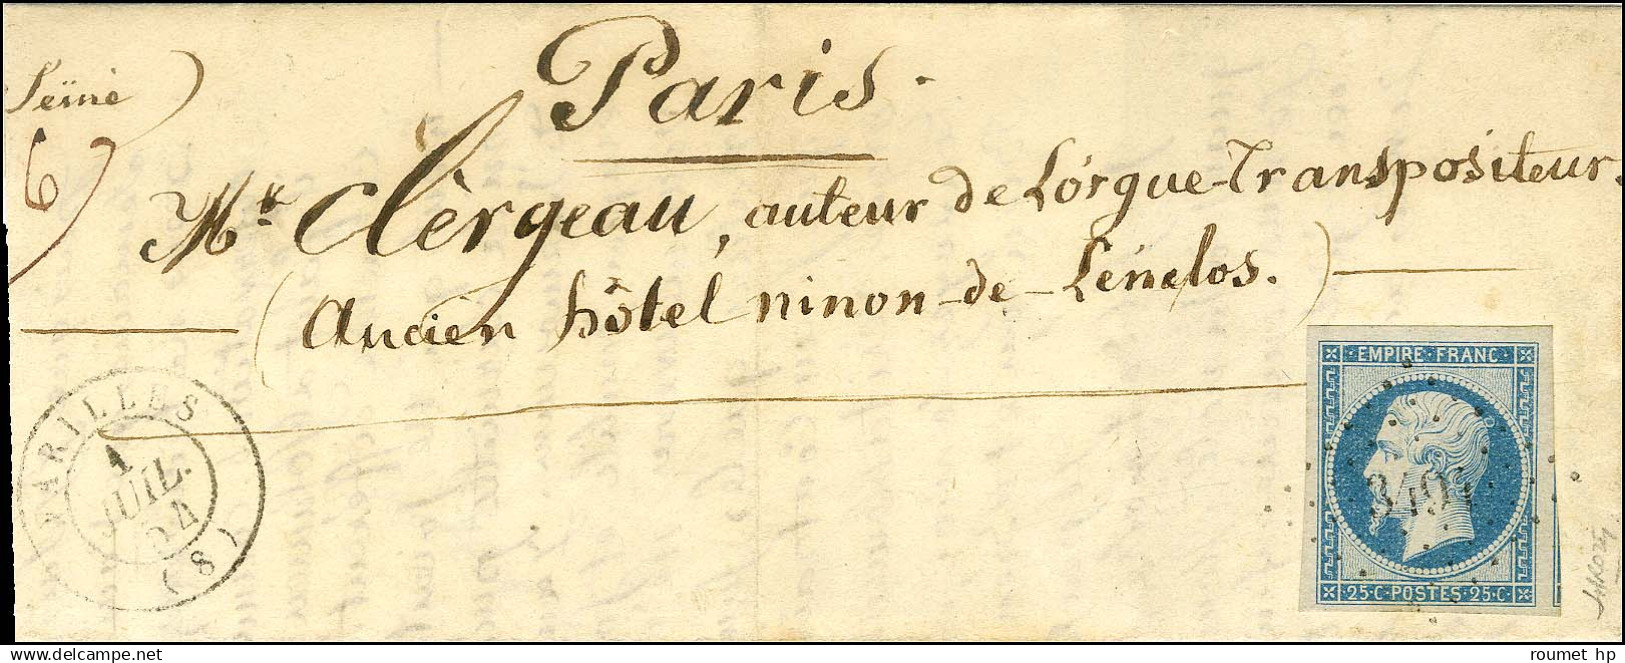 Seine)
Paris.
6)
Mr. Clèrgeau, auteur de Lórgue-Transpositeur.
(Ancien hôtel ninon-de-Lènclos.)
VARILLES
1
JUIL.
54
(8)
EMPIRE·FRANC·
25·C·POSTES·25·C·
delcampe.net
roumet hp